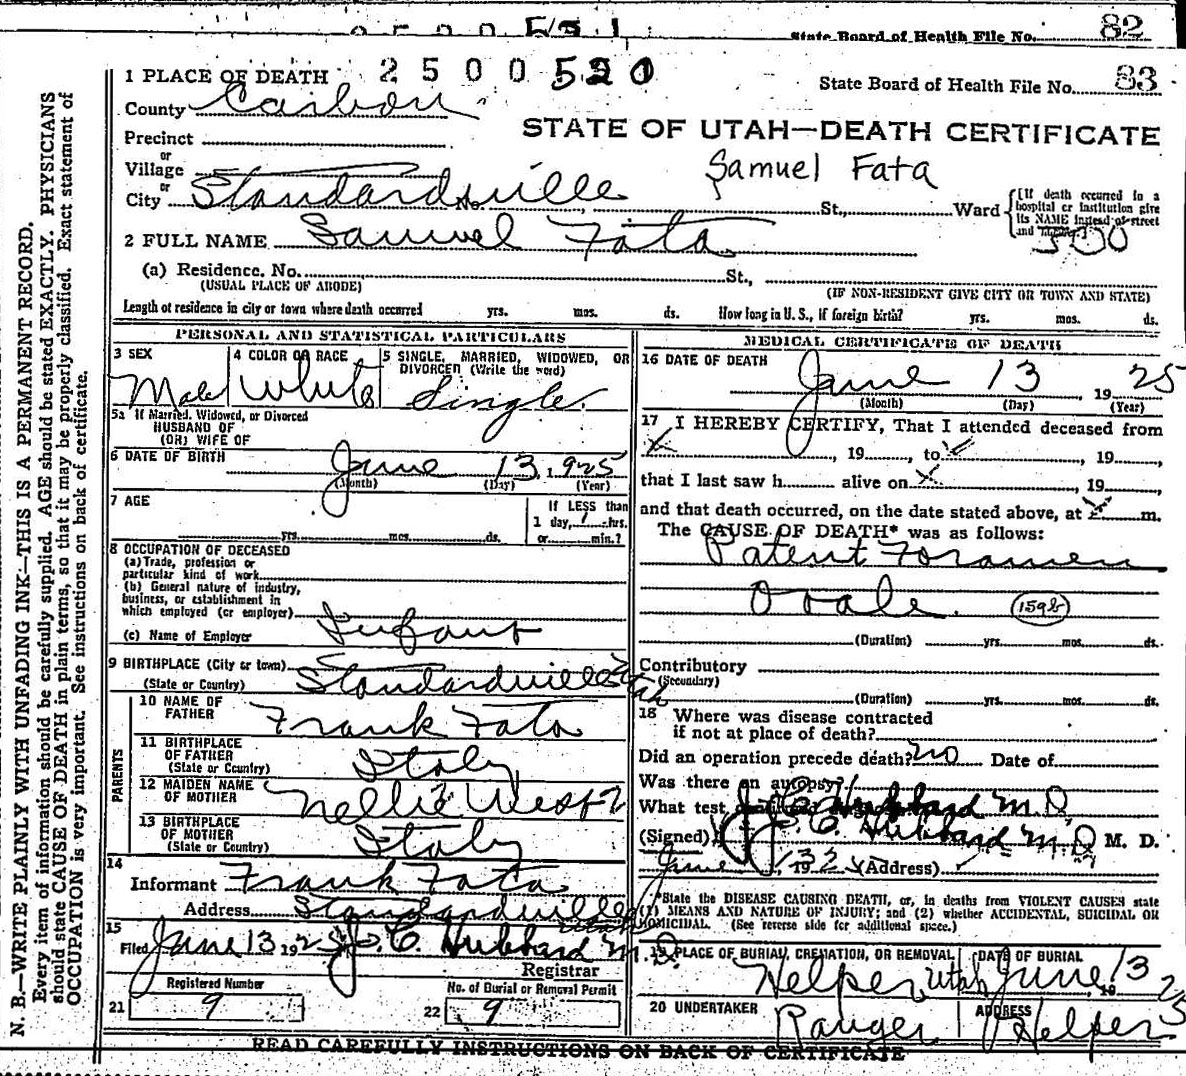 82
State Board of Health File No.
1 PLACE OF DEATH 2500520
State Board of Health File No. 83
County Carbon
STATE OF UTAH—DEATH CERTIFICATE
Precinct
or
Village
or
City Standardsville No. St., Ward
Samuel Fata
[If death occurred in a hospital or institution give its NAME instead of street and number.]
500
2 FULL NAME Samuel Fata
(a) Residence. No. St.,
(USUAL PLACE OF ABODE)
(IF NON-RESIDENT GIVE CITY OR TOWN AND STATE)
Length of residence in city or town where death occurred yrs. mos. ds. How long in U. S., if foreign birth? yrs. mos. ds.
PERSONAL AND STATISTICAL PARTICULARS
3 SEX
Male
4 COLOR OR RACE
White
5 SINGLE, MARRIED, WIDOWED, OR
DIVORCED (Write the word)
Single
5a If Married, Widowed, or Divorced
HUSBAND OF
(OR) WIFE OF
6 DATE OF BIRTH June 13, 1925
(Month) (Day) (Year)
7 AGE
yrs. mos. ds.
If LESS than
1 day, 1 hrs.
or min.?
8 OCCUPATION OF DECEASED
(a) Trade, profession or
particular kind of work
(b) General nature of industry,
business, or establishment in
which employed (or employer)
(c) Name of Employer Infant
9 BIRTHPLACE (City or town)
(State or Country) Standardville Utah
PARENTS
10 NAME OF
FATHER Frank Fata
11 BIRTHPLACE
OF FATHER
(State or Country) Italy
12 MAIDEN NAME
OF MOTHER Nellie
13 BIRTHPLACE
OF MOTHER
(State or Country) Italy
14
Informant Frank Fata
Address Standardville Utah
15
Filed June 13 1925 J. C. Hubbard M.D.
Registrar
Registered Number
21 9
No. of Burial or Removal Permit
22 9
MEDICAL CERTIFICATE OF DEATH
16 DATE OF DEATH
June 13 1925
(Month) (Day) (Year)
17 I HEREBY CERTIFY, That I attended deceased from
x, 19, to x, 19,
that I last saw h alive on x, 19
and that death occurred, on the date stated above, at x m.
The CAUSE OF DEATH* was as follows:
Patent Foramen
Ovale. (159b)
(Duration) yrs. mos. ds.
Contributory
(Secondary)
(Duration) yrs. mos. ds.
18 Where was disease contracted
if not at place of death?
Did an operation precede death? no Date of
Was there an autopsy?
What test J. C. Hubbard M.D.
(Signed) J. C. Hubbard M.D. M. D.
June 13 1925 (Address)
*State the DISEASE CAUSING DEATH, or, in deaths from VIOLENT CAUSES state
(1) MEANS AND NATURE OF INJURY; and (2) whether ACCIDENTAL, SUICIDAL OR
HOMICIDAL. (See reverse side for additional space.)
19 PLACE OF BURIAL, CREMATION, OR REMOVAL
Helper, Utah
DATE OF BURIAL
June 13 1925
20 UNDERTAKER
ADDRESS
Helper
READ CAREFULLY INSTRUCTIONS ON BACK OF CERTIFICATE
N. B.—WRITE PLAINLY WITH UNFADING INK—THIS IS A PERMANENT RECORD.
Every item of information should be carefully supplied. AGE should be stated EXACTLY. PHYSICIANS
should state CAUSE OF DEATH in plain terms, so that it may be properly classified. Exact statement of
OCCUPATION is very important. See instructions on back of certificate.